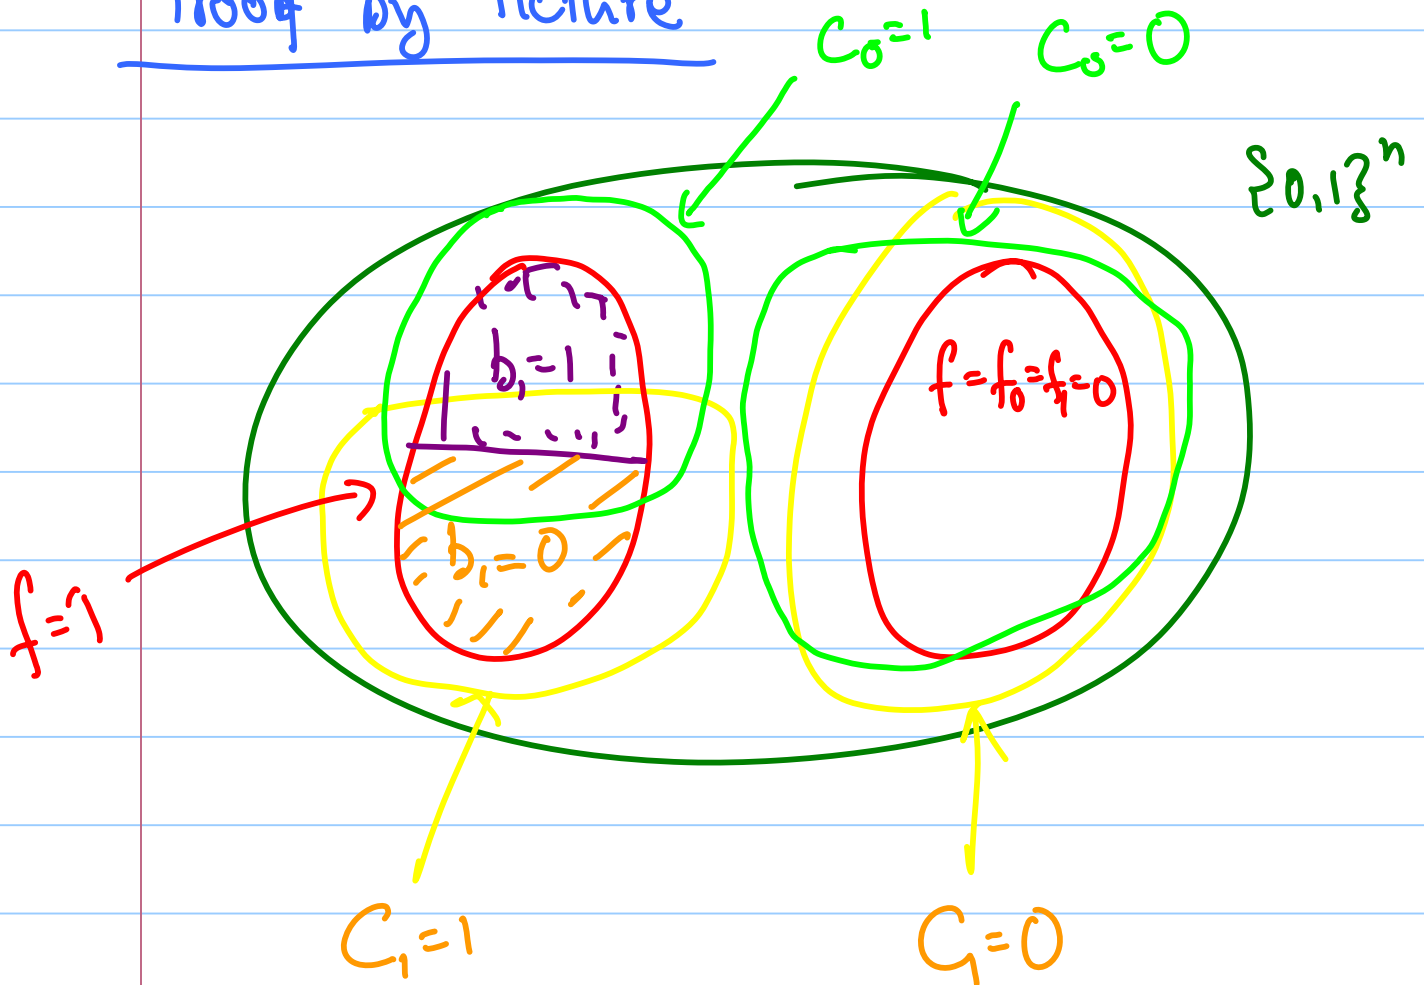 Proof by Picture
C₀=1
C₀=0
{0,1}ⁿ
b₁=1
f=f₀=f₁=0
b₁=0
f=1
C₁=1
C₁=0